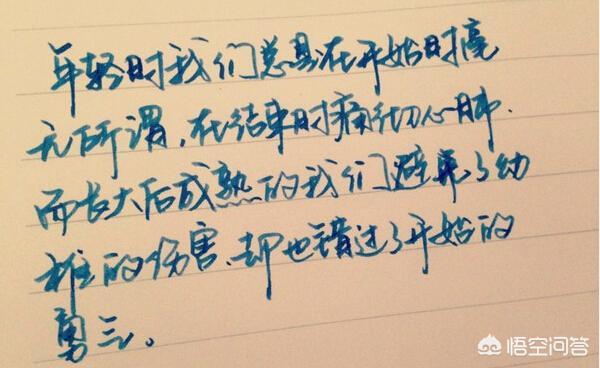 年轻时我们总是在开始时毫
无所谓,在结束时痛彻心肺.
而长大后成熟的我们避免了幼
稚的伤害,却也错过了开始的
勇气。
悟空问答